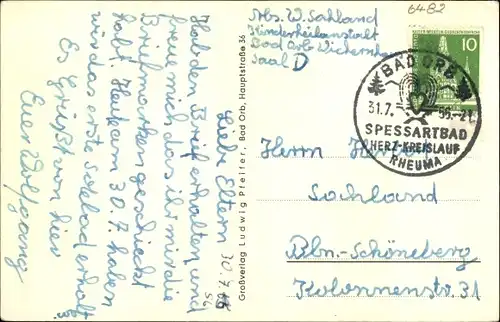 6482
Abs. W. Sahland
Kinderheilanstalt
Bad Orb Wichernhaus
Saal D
10
BAD ORB
31.7. 56.-21
SPESSARTBAD
HERZ-KREISLAUF
RHEUMA
Herrn Herbert
Sahland
Bln.-Schöneberg
Kolonnenstr. 31
Großverlag Ludwig Pfeiffer, Bad Orb, Hauptstraße 36
30.7.56
Liebe Eltern
Hab den Brief erhalten und
freue mich das ihr mir die
Briefmarken geschickt
habt. Heute am 30.7. haben
wir das erste Solbad erhalten.
Es Grüßt von hier
Euer Wolfgang